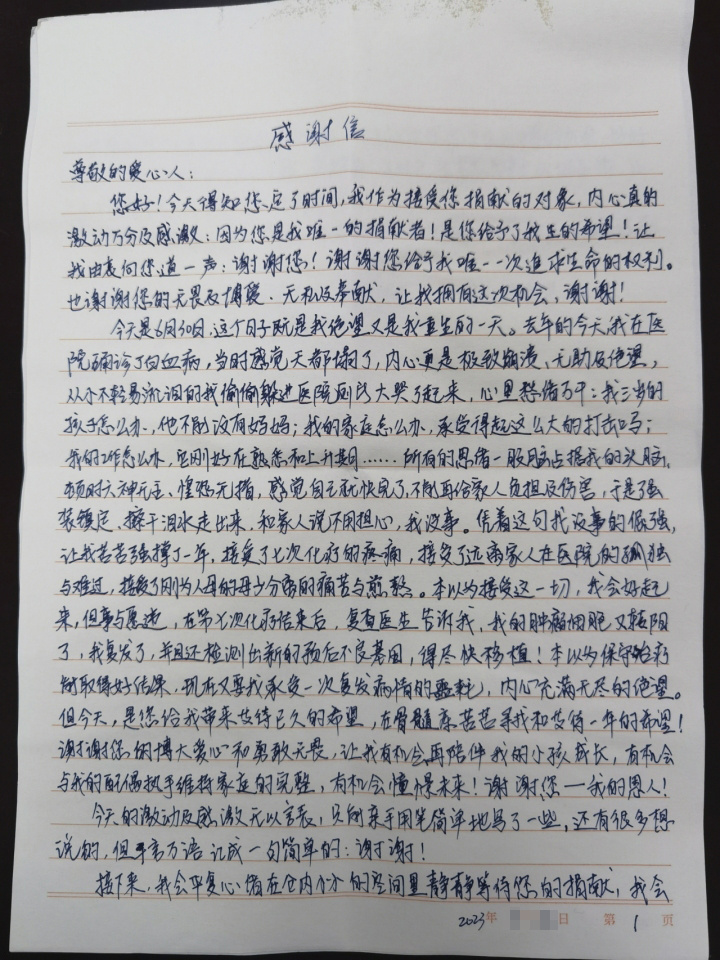 感谢信
尊敬的爱心人：
您好！今天得知您定了时间，我作为接受您捐献的对象，内心真的
激动万分及感激；因为您是我唯一的捐献者！是您给予了我生的希望！让
我由衷向您道一声：谢谢您！谢谢您给予我唯一一次追求生命的权利。
也谢谢您的无畏及博爱、无私及奉献，让我拥有这次机会，谢谢！
今天是6月30日，这个日子既是我绝望又是我重生的一天。去年的今天，我在医
院确诊了白血病，当时感觉天都塌了，内心更是极致崩溃、无助及绝望，
从小不轻易流泪的我偷偷躲进医院厕所大哭了起来，心里愁绪万千：我三岁的
孩子怎么办，他不能没有妈妈；我的家庭怎么办，承受得起这么大的打击吗；
我的工作怎么办，它刚好在熟悉和上升期……所有的思绪一股脑占据我的头脑，
顿时六神无主、惶恐无措，感觉自己就快完了，不能再给家人负担及伤害，于是强
装镇定、擦干泪水走出来，和家人说不用担心，我没事。凭着这句我没事的倔强，
让我苦苦强撑了一年，接受了七次化疗的疼痛，接受了远离家人在医院的孤独
与难过，接受了刚为人母的母少分离的痛苦与煎熬。本以为接受这一切，我会好起
来，但事与愿违，在第七次化疗结束后，复查医生告诉我，我的肿瘤细胞又转阳
了，我复发了，并且还检测出新的预后不良基因，得尽快移植！本以为保守治疗
能取得好结果，现在又要我承受一次复发病情的噩耗，内心充满无尽的绝望。
但今天，是您给我带来等待已久的希望，在骨髓库苦苦寻找和等待一年的希望！
谢谢您的博大爱心和勇敢无畏，让我有机会再陪伴我的小孩成长，有机会
与我的配偶执手维持家庭的完整，有机会憧憬未来！谢谢您——我的恩人！
今天的激动及感激无以言表，只问亲手用笔简单地写了一些，还有很多想
说的，但千言万语汇成一句简单的：谢谢！
接下来，我会平复心绪在仓内的空间里静静等待您的捐献，我会
2023年 日 第 1 页